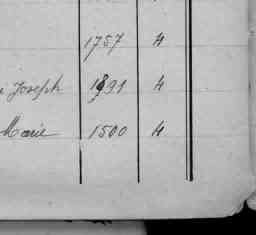 1757 4
Joseph 1891 4
Marie 1500 4